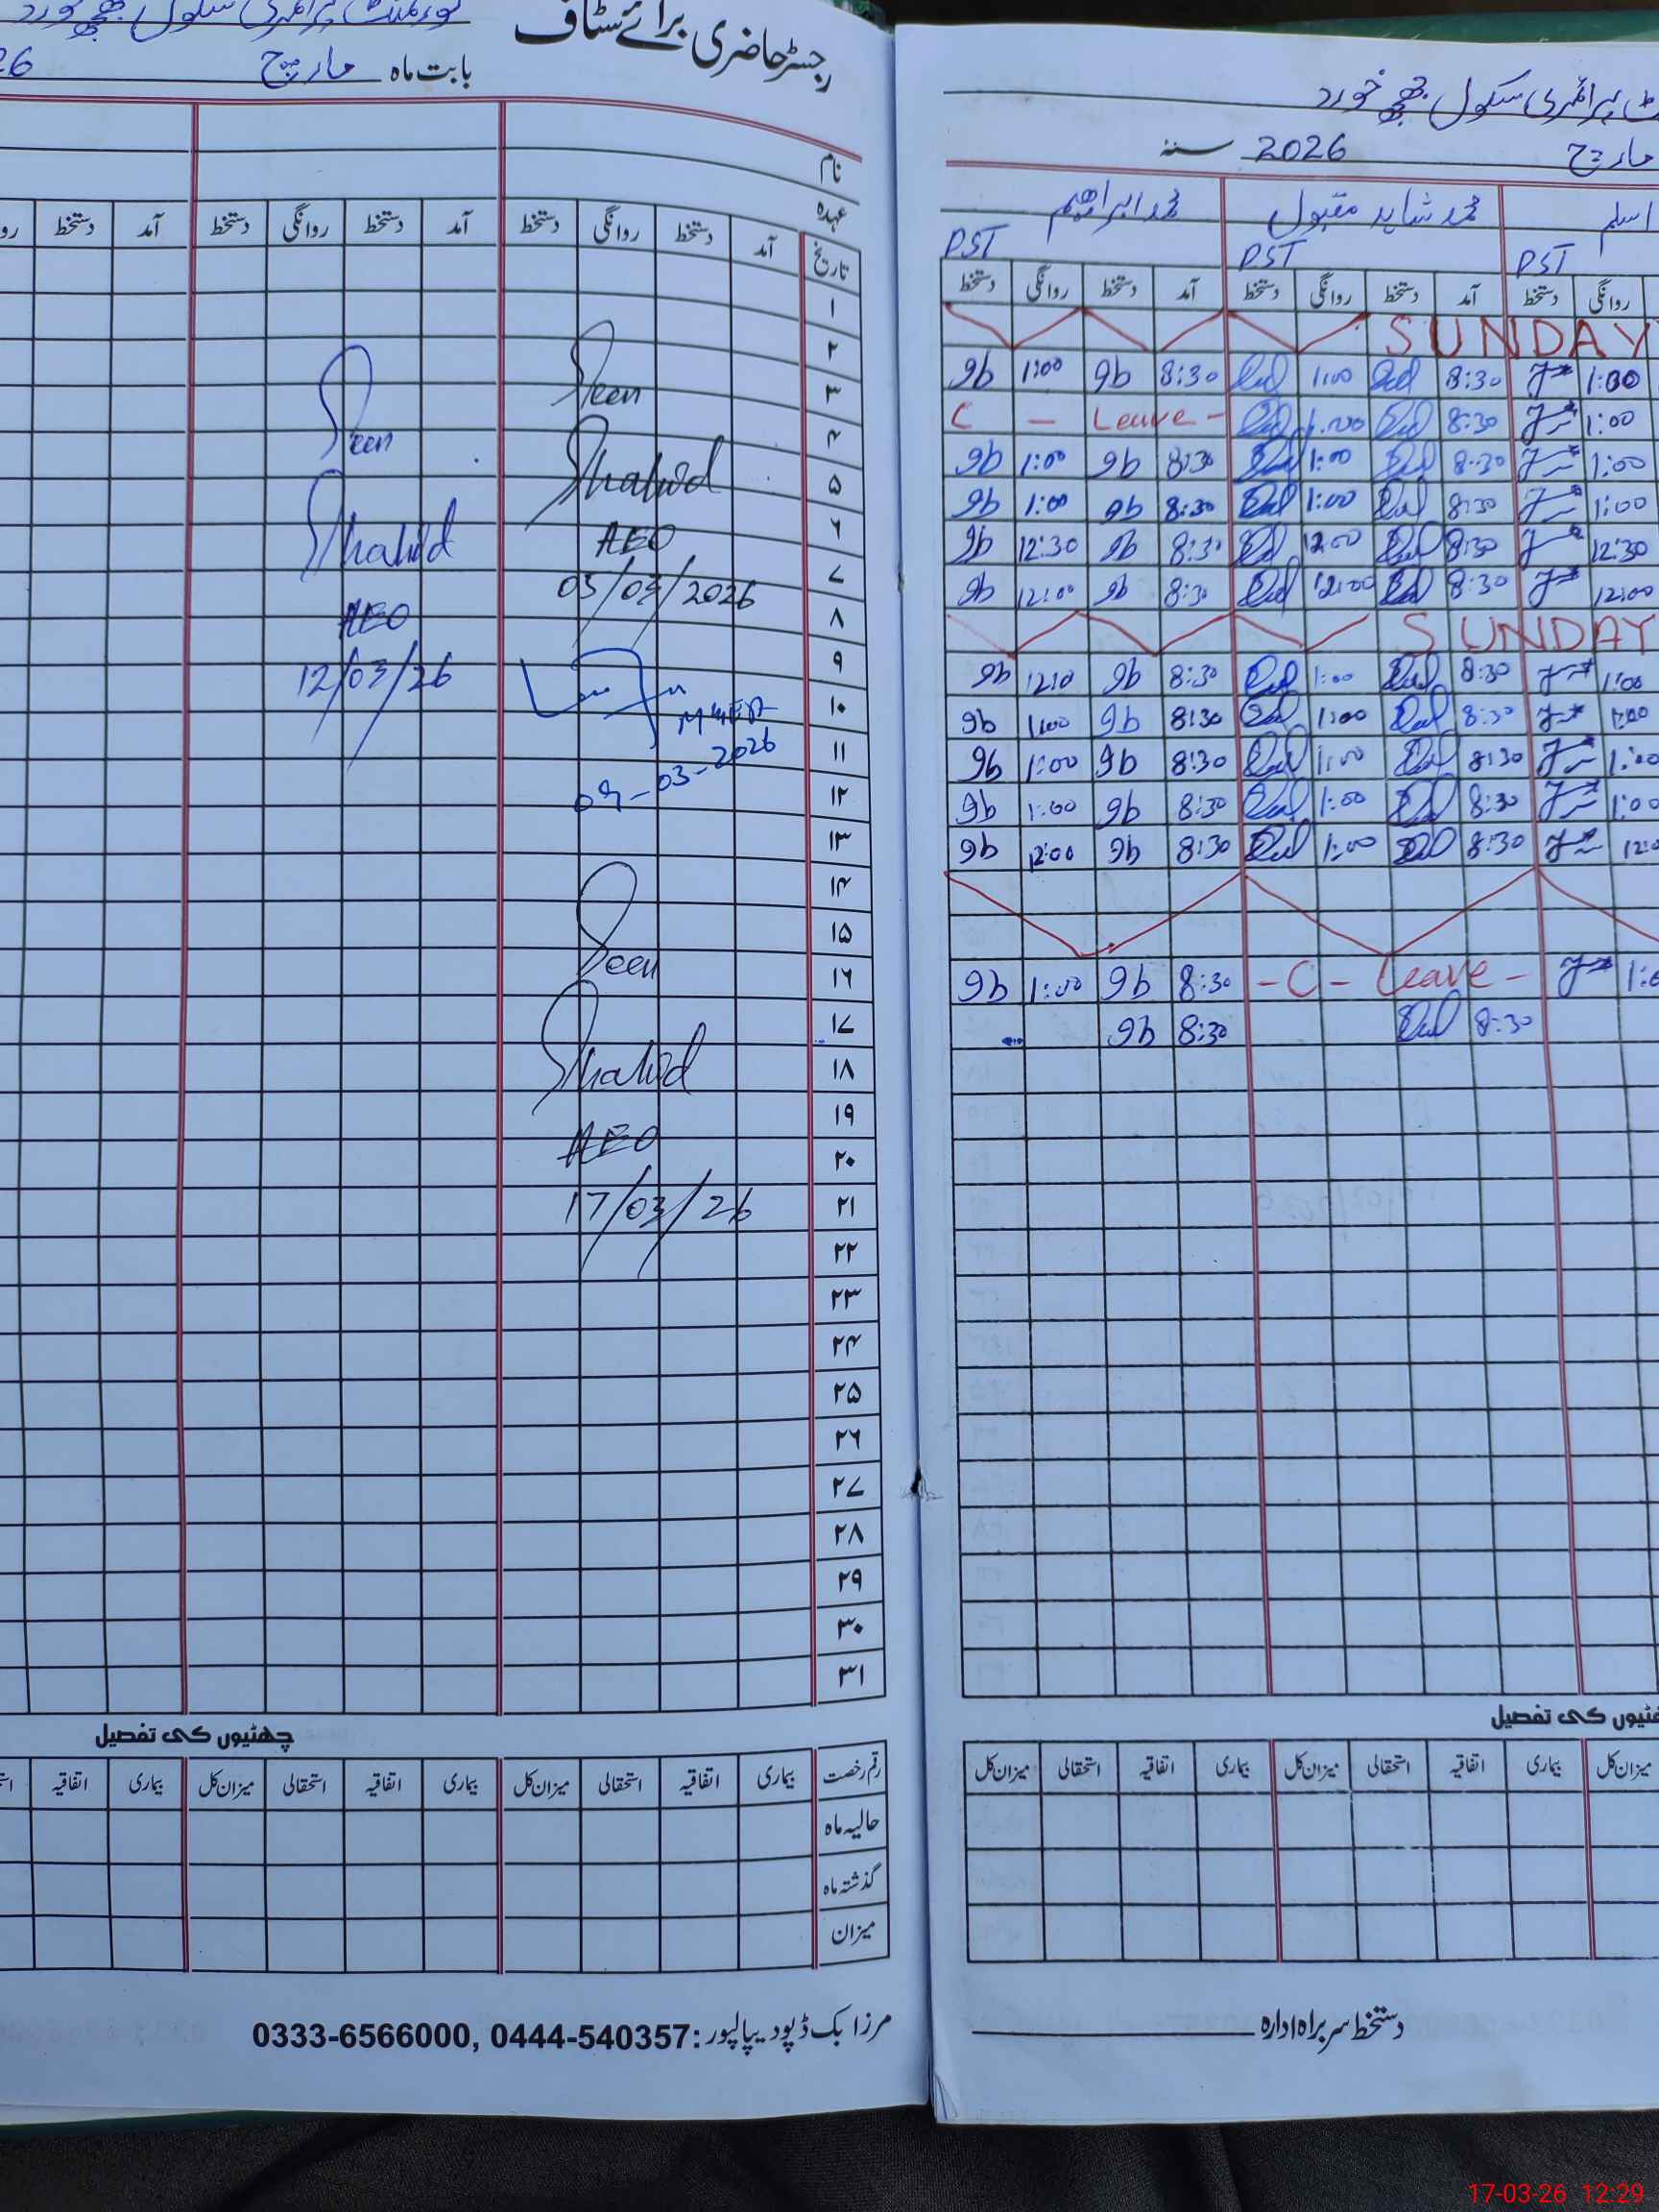 رجسٹر حاضری برائے سٹاف
گورنمنٹ پرائمری سکول
بابت ماہ مارچ 26
نام
عہدہ
تاریخ آمد دستخط روانگی دستخط آمد دستخط روانگی دستخط آمد دستخط
۱
۲
۳
۴
۵
۶
۷
۸
۹
۱۰
۱۱
۱۲
۱۳
۱۴
۱۵
۱۶
۱۷
۱۸
۱۹
۲۰
۲۱
۲۲
۲۳
۲۴
۲۵
۲۶
۲۷
۲۸
۲۹
۳۰
۳۱
Seen
Shahid
AEO
03/03/2026
09-03-2026
Seen
Shahid
AEO
17/03/26
Seen
Shahid
AEO
12/03/26
چھٹیوں کی تفصیل
رقم رخصت بیماری اتفاقیہ استحقاقی میزان کل بیماری اتفاقیہ استحقاقی میزان کل بیماری اتفاقیہ
حالیہ ماہ
گذشتہ ماہ
میزان
مرزا بک ڈپو دیپالپور: 0333-6566000, 0444-540357
پرائمری سکول
مارچ 2026 سنہ
اسلم محمد شاہد مقبول محمد ابراہیم
PST PST PST
روانگی دستخط آمد دستخط روانگی دستخط آمد دستخط روانگی دستخط
SUNDAY
1:00 8:30 1:00 8:30 1:00
1:00 8:30 1:00 C - Leave -
1:00 8:30 1:00 8:30 1:00
1:00 8:30 1:00 8:30 1:00
12:30 8:30 12:00 8:30 12:30
12:00 8:30 12:00 8:30 12:00
SUNDAY
1:00 8:30 1:00 8:30
1:00 8:30 1:00 8:30 1:00
1:00 8:30 1:00 8:30 1:00
1:00 8:30 1:00 8:30 1:00
8:30 1:00 8:30 12:00
- C - Leave - 8:30 1:00
8:30 8:30
چھٹیوں کی تفصیل
میزان کل بیماری اتفاقیہ استحقاقی میزان کل بیماری اتفاقیہ استحقاقی میزان کل
دستخط سربراہ ادارہ
17-03-26 12:29